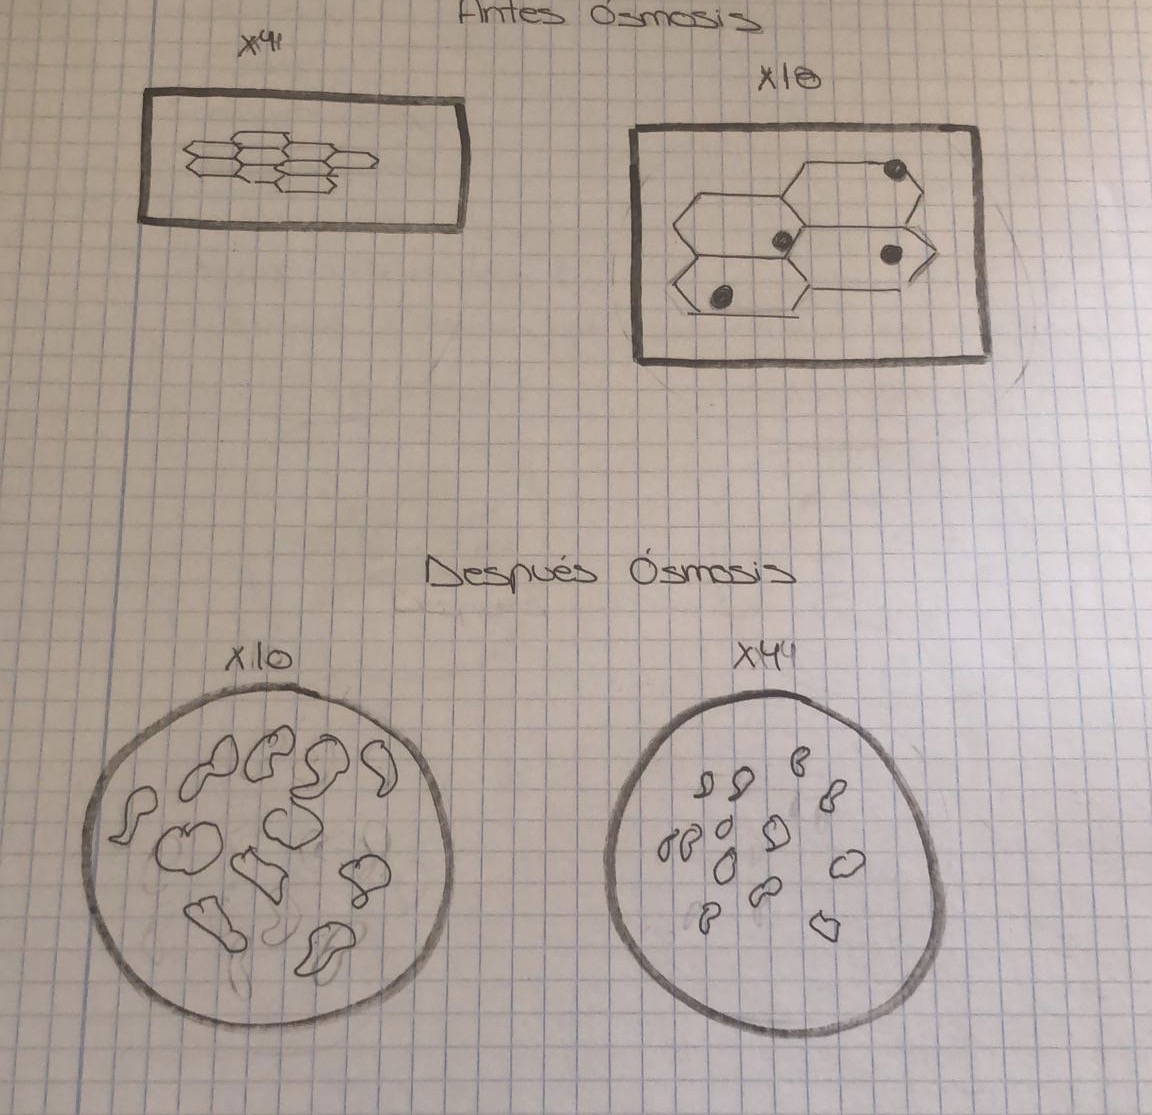 Antes Ósmosis
x4
x10
Después Ósmosis
x10
x44